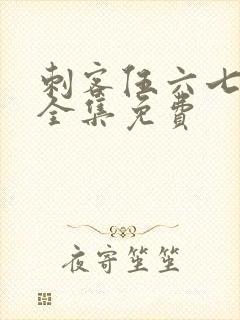 刺客伍六七
全集免费
夜寄笙笙